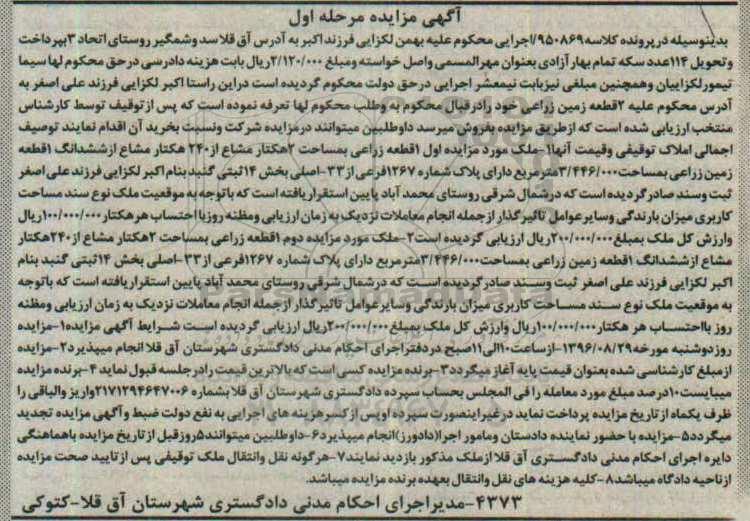 آگهی مزایده مرحله اول
بدینوسیله در پرونده کلاسه ۹۵۰۸۶۹/اجرایی محکوم علیه بهمن لکزایی فرزند اکبر به آدرس آق قلا سد وشمگیر روستای اتحاد ۳بپرداخت
وتحویل ۱۱۴عدد سکه تمام بهار آزادی بعنوان مهرالمسمی واصل خواسته ومبلغ ۲/۱۲۰/۰۰۰ریال بابت هزینه دادرسی درحق محکوم لها سیما
تیمورلکزاییان وهمچنین مبلغی نیزبابت نیمعشر اجرایی درحق دولت محکوم گردیده است دراین راستا اکبر لکزایی فرزند علی اصغر به
آدرس محکوم علیه ۲قطعه زمین زراعی خود رادرقبال محکوم به وطلب محکوم لها تعرفه نموده است که پس ازتوقیف توسط کارشناس
منتخب ارزیابی شده است که ازطریق مزایده بفروش میرسد داوطلبین میتوانند درمزایده شرکت ونسبت بخرید آن اقدام نمایند توصیف
اجمالی املاک توقیفی وقیمت آنها۱-ملک مورد مزایده اول ۱قطعه زراعی بمساحت ۲هکتار مشاع از۲۴۰ هکتار مشاع ازششدانگ ۱قطعه
زمین زراعی بمساحت۳/۴۴۶/۰۰۰مترمربع دارای پلاک شماره ۱۲۶۷فرعی از۳۳-اصلی بخش ۱۴ثبتی گنبد بنام اکبر لکزایی فرزند علی اصغر
ثبت وسند صادرگردیده است که درشمال شرقی روستای محمد آباد پایین استقراریافته است که باتوجه به موقعیت ملک نوع سند مساحت
کاربری میزان بارندگی وسایرعوامل تاثیرگذار ازجمله انجام معاملات نزدیک به زمان ارزیابی ومظنه روزبا احتساب هرهکتار۱۰۰/۰۰۰/۰۰۰ریال
وارزش کل ملک بمبلغ۲۰۰/۰۰۰/۰۰۰ریال ارزیابی گردیده است۲-ملک مورد مزایده دوم ۱قطعه زراعی بمساحت ۲هکتار مشاع از۲۴۰هکتار
مشاع ازششدانگ ۱قطعه زمین زراعی بمساحت۳/۴۴۶/۰۰۰مترمربع دارای پلاک شماره ۱۲۶۷فرعی از۳۳-اصلی بخش ۱۴ثبتی گنبد بنام
اکبر لکزایی فرزند علی اصغر ثبت وسند صادرگردیده است که درشمال شرقی روستای محمد آباد پایین استقراریافته است که باتوجه
به موقعیت ملک نوع سند مساحت کاربری میزان بارندگی وسایرعوامل تاثیرگذار ازجمله انجام معاملات نزدیک به زمان ارزیابی ومظنه
روز بااحتساب هر هکتار۱۰۰/۰۰۰/۰۰۰ریال وارزش کل ملک بمبلغ ۲۰۰/۰۰۰/۰۰۰ریال ارزیابی گردیده است شرایط آگهی مزایده۱-مزایده
روزدوشنبه مورخه۱۳۹۶/۰۸/۲۹-ازساعت۱۰الی۱۱صبح دردفتراجرای احکام مدنی دادگستری شهرستان آق قلا انجام میپذیرد۲-مزایده
ازمبلغ کارشناسی شده بعنوان قیمت پایه آغاز میگردد۳-برنده مزایده کسی است که بالاترین قیمت رادرجلسه قبول نماید ۴-برنده مزایده
میبایست۱۰درصد مبلغ مورد معامله رافی المجلس بحساب سپرده دادگستری شهرستان آق قلا بشماره ۲۱۷۱۲۹۴۶۴۷۰۰۶واریز والباقی را
ظرف یکماه ازتاریخ مزایده پرداخت نماید درغیراینصورت سپرده اوپس ازکسرهزینه های اجرایی به نفع دولت ضبط وآگهی مزایده تجدید
میگردد۵-مزایده با حضور نماینده دادستان ومامور اجرا(دادورز)انجام میپذیرد۶-داوطلبین میتوانند۵روزقبل ازتاریخ مزایده باهماهنگی
دایره اجرای احکام مدنی دادگستری آق قلا ازملک مذکور بازدید نمایند۷-هرگونه نقل وانتقال ملک توقیفی پس ازتایید صحت مزایده
ازناحیه دادگاه میباشد۸-کلیه هزینه های نقل وانتقال بعهده برنده مزایده میباشد.
۴۳۷۳-مدیراجرای احکام مدنی دادگستری شهرستان آق قلا-کتوکی